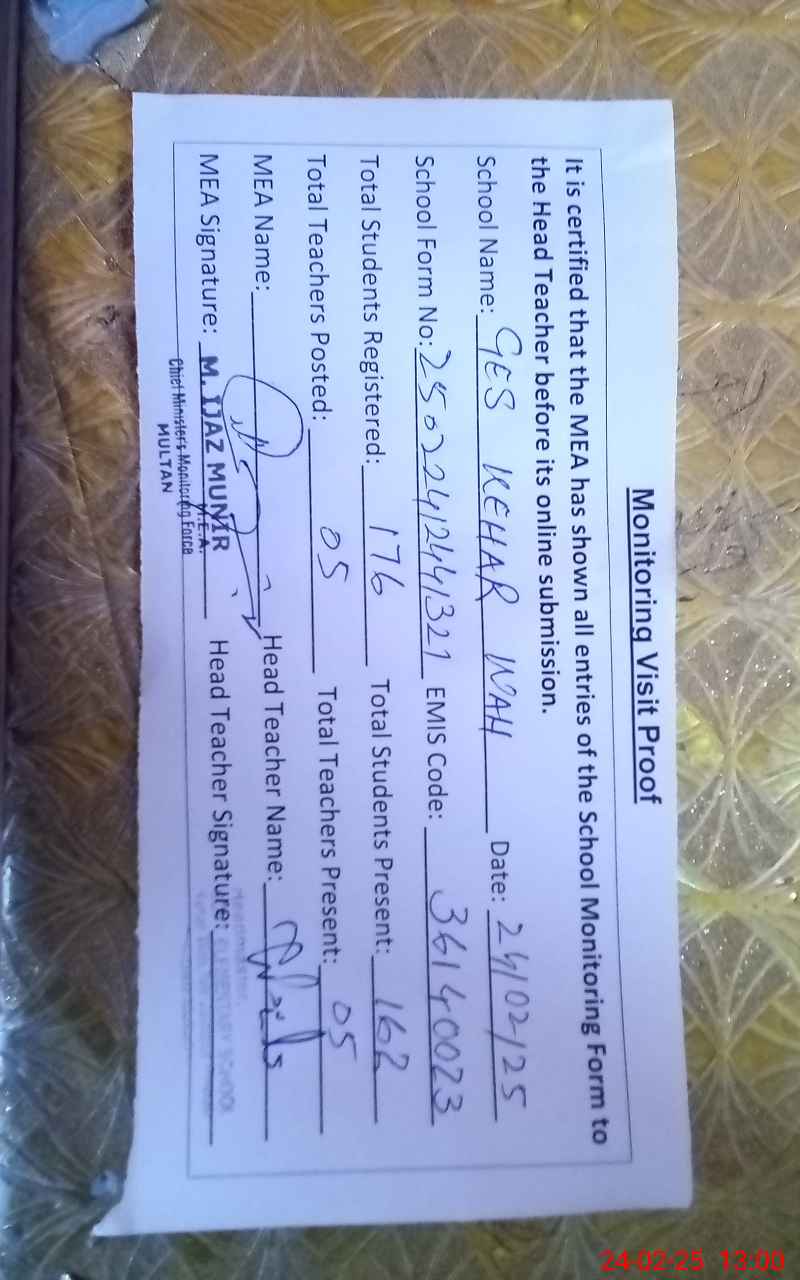 Monitoring Visit Proof
It is certified that the MEA has shown all entries of the School Monitoring Form to
the Head Teacher before its online submission.
School Name: GES KEHAR WAH Date: 24/02/25
School Form No: 25022412441321 EMIS Code: 36140023
Total Students Registered: 176 Total Students Present: 162
Total Teachers Posted: 05 Total Teachers Present: 05
MEA Name: Head Teacher Name:
MEA Signature: M. IJAZ MUNIR Head Teacher Signature:
M.E.A.
Chief Minister's Monitoring Force
MULTAN
ELEMENTARY SCHOOL
24-02-25 13:00